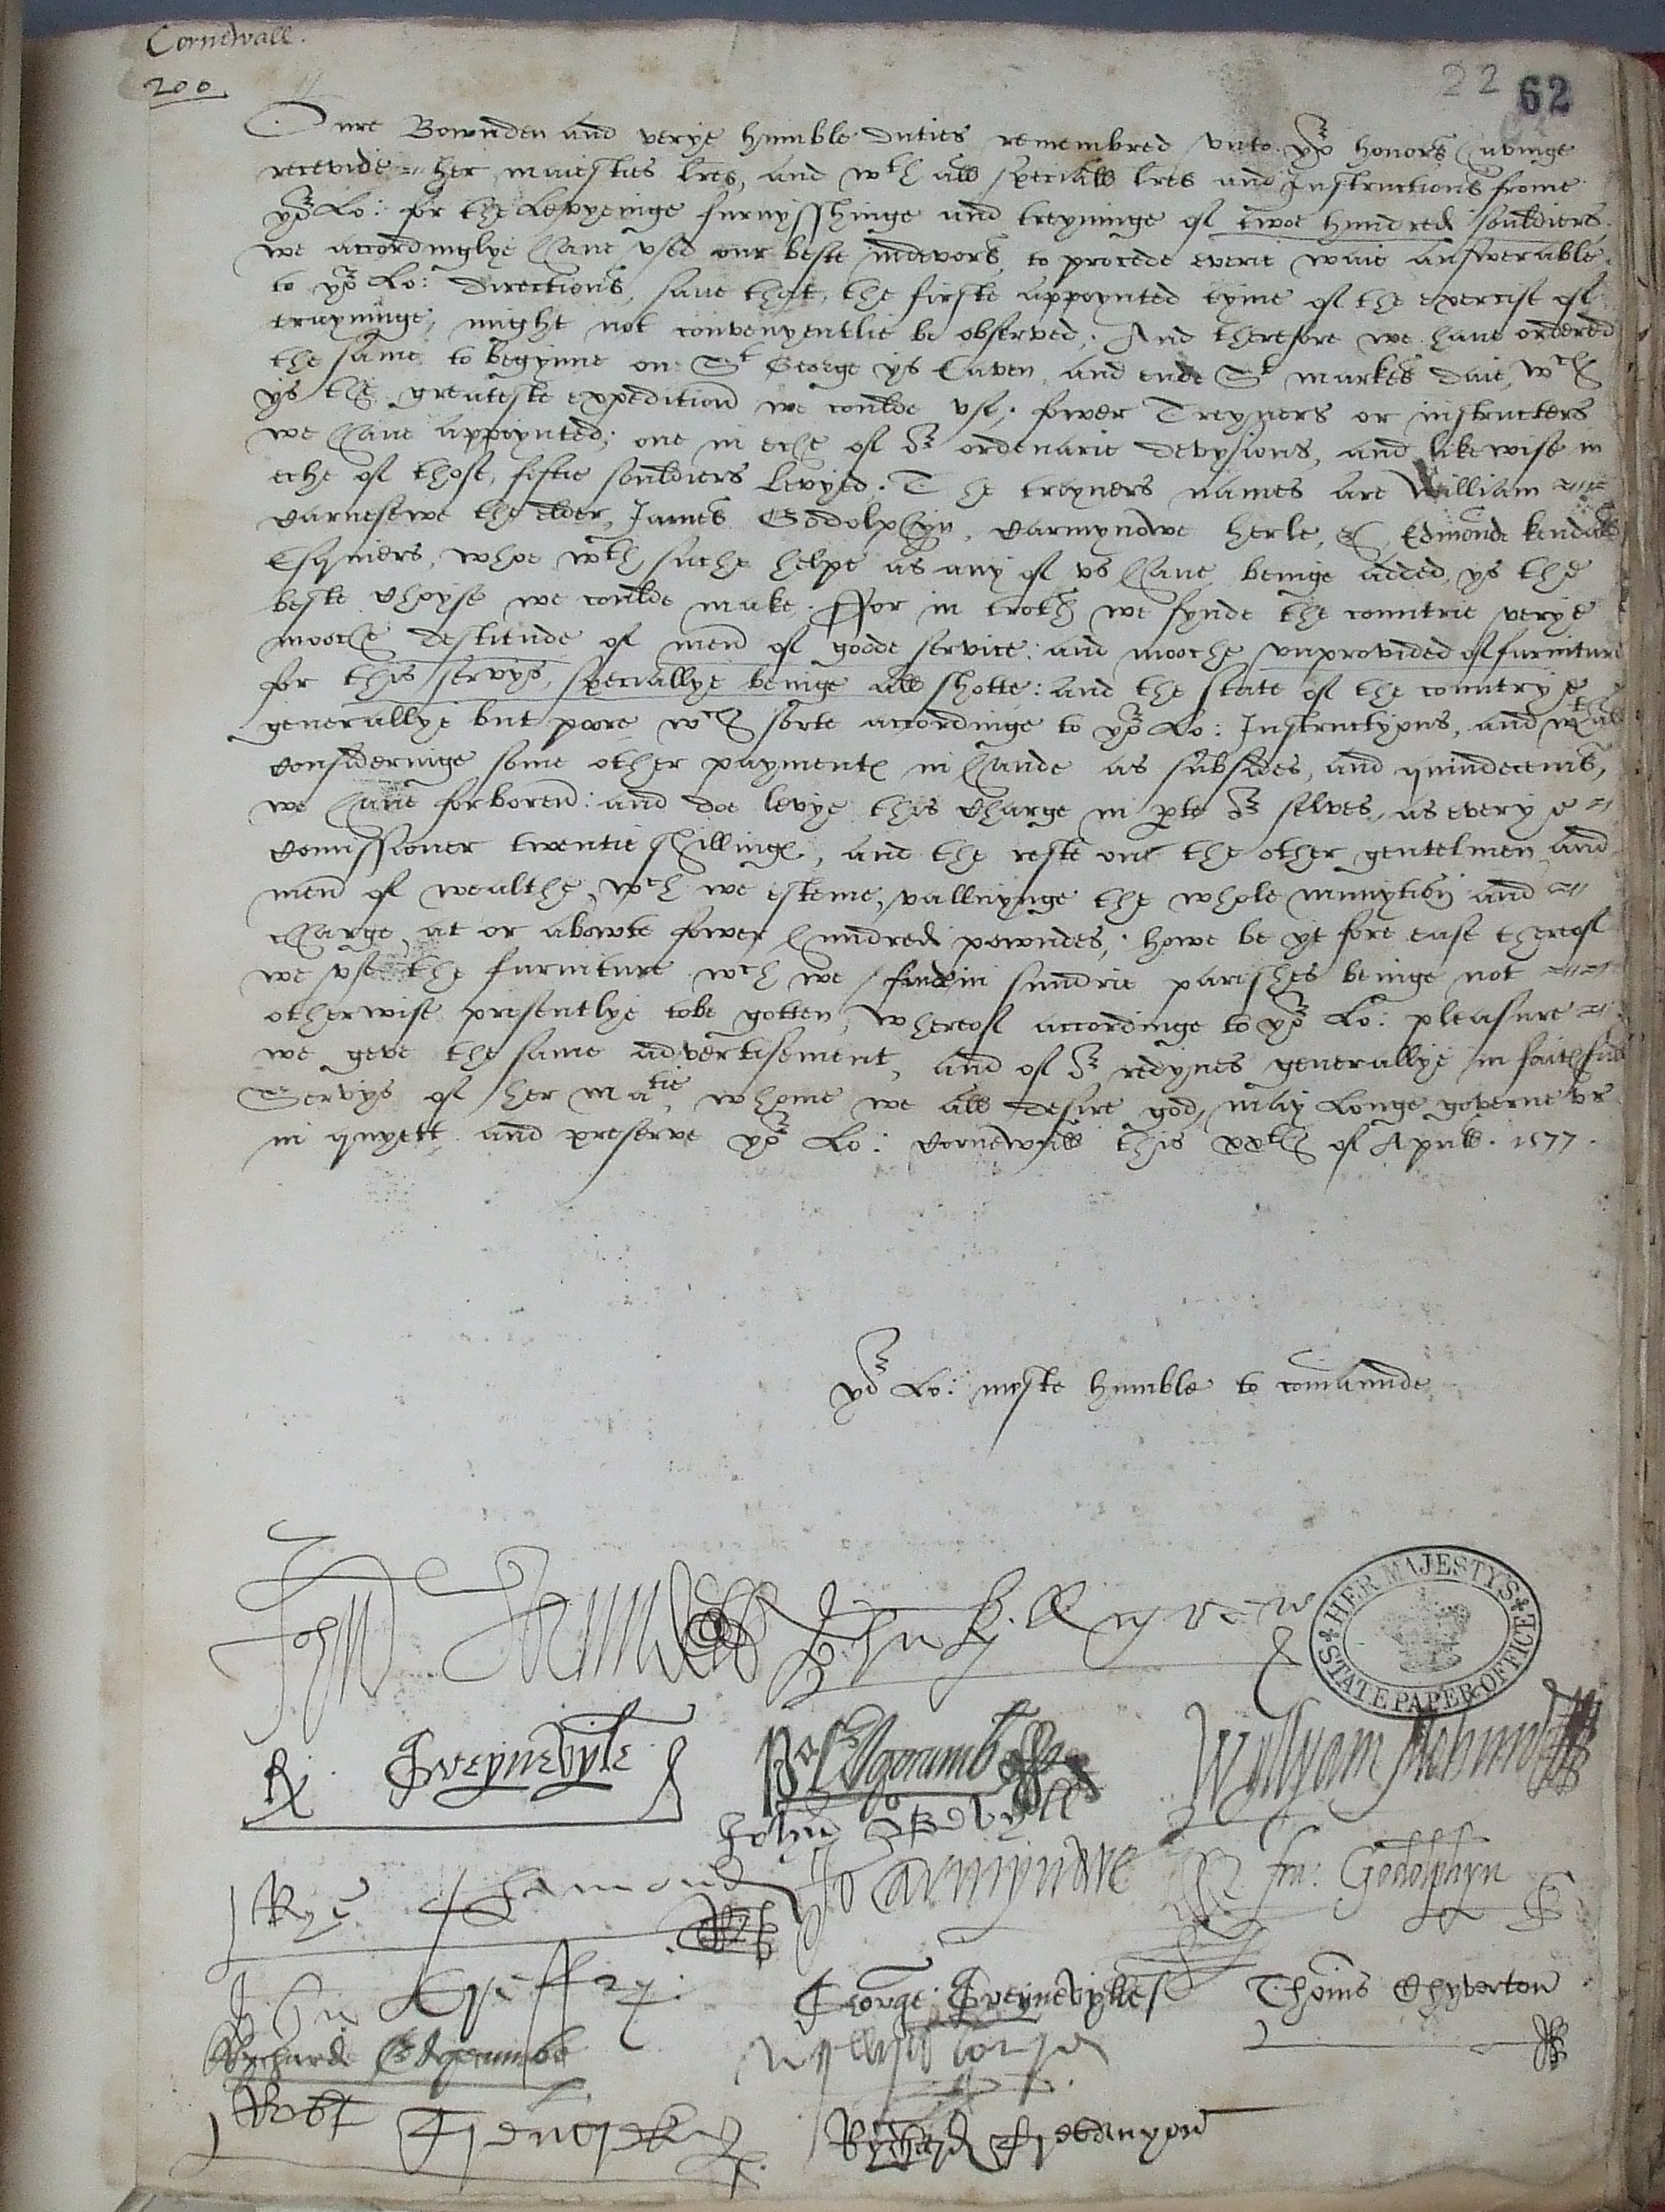 Cornewall.
200.
22 62
Oure Bownden and verye humble duties remembred unto yor honors havinge
recevide her maiesties lres, and wth all speciall lres and Instructions frome
yor Lo: for the Levyeinge furnysshinge and treyninge of twoe hundred souldiers.
we accordinglye have used our beste indevors, to procede everie waie answerable
to yor Lo: directions, save that, the firste appoynted tyme of the exercise of
trayninge, might not convenyentlie be observed; And therefore we have ordered
the same to begynne on St George ys Eaven, and ende St markes daie, wch
ys the greateste expedition we coulde use; fower Treyners or instructers
we have appoynted; one in eche of or ordenarie devysions, and likewise in
eche of those, fiftie souldiers Levyed. The treyners names are William
Carnesewe the elder, James Godolphyn, Carmyndwe herle, & Edmonde kendall
Esquiers, whoe wth suche helpe as any of us have, beinge added, ys the
beste choyse we coulde make. Ffor in troth we fynde the countrie verye
mooche destitude of men of goode service: and mooche unprovided of furniture
for this servys, speciallye beinge all shotte: and the state of the countrye
generallye but poore wch sorte accordinge to yor Lo: Instructyons, and wthall
consideringe some other payments in hande as subsides, and quindecems,
we have forboren: and doe levye this charge in pte or selves, as everye
comissioner twentie shillings, and the reste one the other gentelmen and
men of wealthe, wch we esteme, valluynge the whole munytion and
charge, at or abowte fower hundred powndes; howe be yt fore ease thereof
we use the furniture wch we finde in sundrie parishes beinge not
otherwise presentlye tobe gotten, whereof accordinge to yor Lo: pleasure
we geve the same advertisement, and of or redynes generallye in faithfull
Servys of her matie, whome we all desire god, may Longe governe us
in quyett, and preserve yor Lo: Cornewall this xxth of Aprill. 1577.
yor Lo: moste humble to comaunde
John Arundell John Kyllygrew
HER MAJESTY'S STATE PAPER OFFICE
Ry. Greynevyle Py Edgcumb Wyllyam Mohun
John
Ryc Chamond Jo Carmynowe fra: Godolphyn
John Treffry. George Greynevyle Thoms Chyverton
Rychard Edgcumbe
Robt Rychard Tredenyow